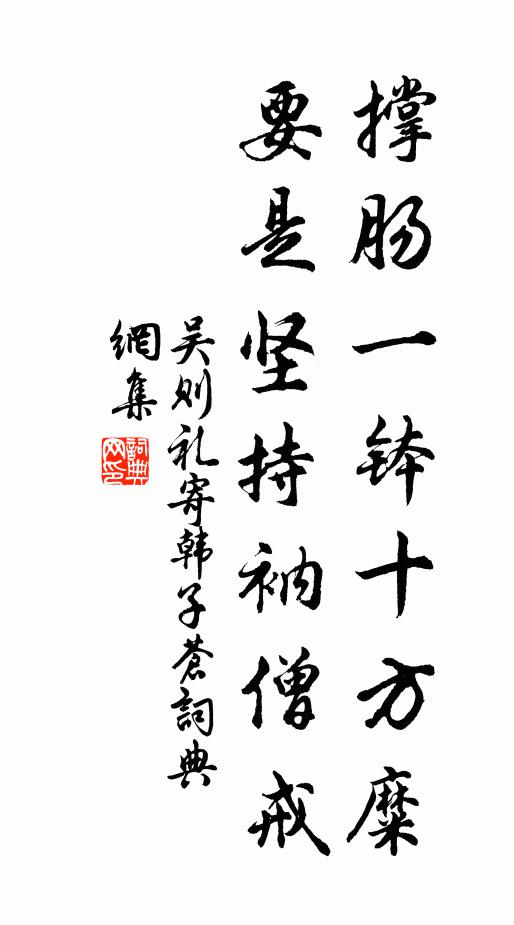 撑肠一钵十方糜
要是坚持衲僧戒
吴则礼寄韩子蒼詞典
網集
詞典
网印